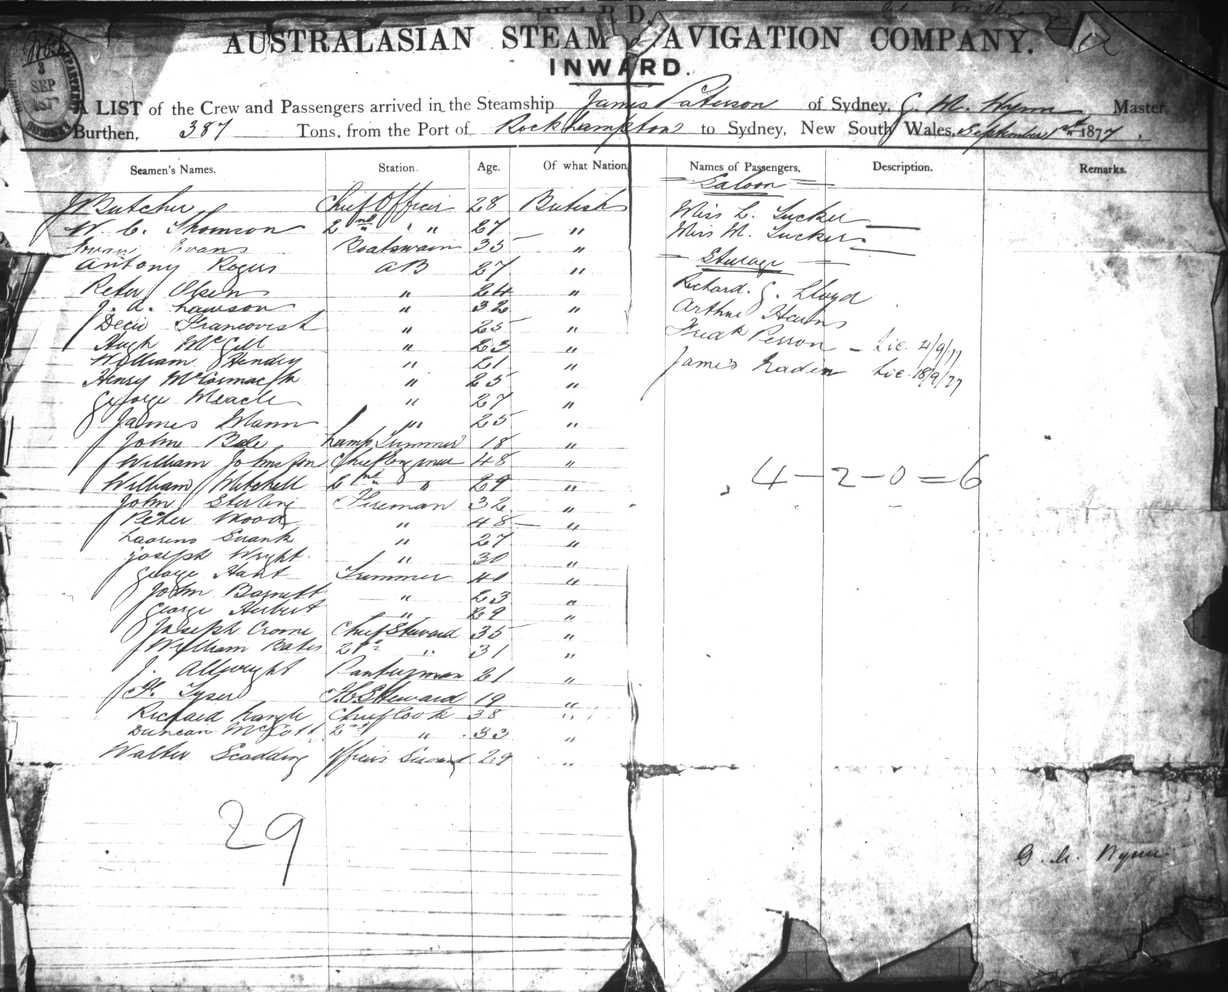 AUSTRALASIAN STEAM NAVIGATION COMPANY.
INWARD.
3
SEP
A LIST of the Crew and Passengers arrived in the Steamship James Paterson of Sydney, G. M. Wynn Master,
Burthen, 387 Tons, from the Port of Rockhampton to Sydney, New South Wales, September 1st 1877.
Seamen's Names. Station. Age. Of what Nation. Names of Passengers. Description. Remarks.
J Butcher Chief Officer 28 British
W. C. Thomson 2nd " " 27 "
Evan Evans Boatswain 35 "
Antony Rogers AB 27 "
Peter Olsen " 24 "
J. A. Lawson " 32 "
Francovish " 25 "
Hugh McGill " 23 "
William Hendry " 21 "
Henry McCormack " 25 "
George Meacle " 27 "
James Mann " 25 "
John Bale Lamp Trimmer 18 "
William Johnston Chief Engineer 48 "
William Mitchell 2nd " 29 "
John Sterling Fireman 32 "
Peter Wood " 48 "
Swank " 27 "
Joseph Wright " 30 "
George Hant Trimmer 41 "
John Barnett " 23 "
George Herbert " 29 "
Joseph Croome Chief Steward 35 "
William Bates 2nd " 31 "
J. Allwright Pantryman 21 "
F. Tyser F. C. Steward 19 "
Richard Chief Cook 38 "
Duncan 2nd " 33 "
Walter Scadding Officers Servant 29 "
29
Saloon
Miss L. Tucker
Miss M. Tucker
Steerage
Richard. G. Lloyd
Arthur
Fredk Perron — Lic. 4/9/77
James Lic. 18/9/77
4 – 2 – 0 = 6
G. M. Wynn